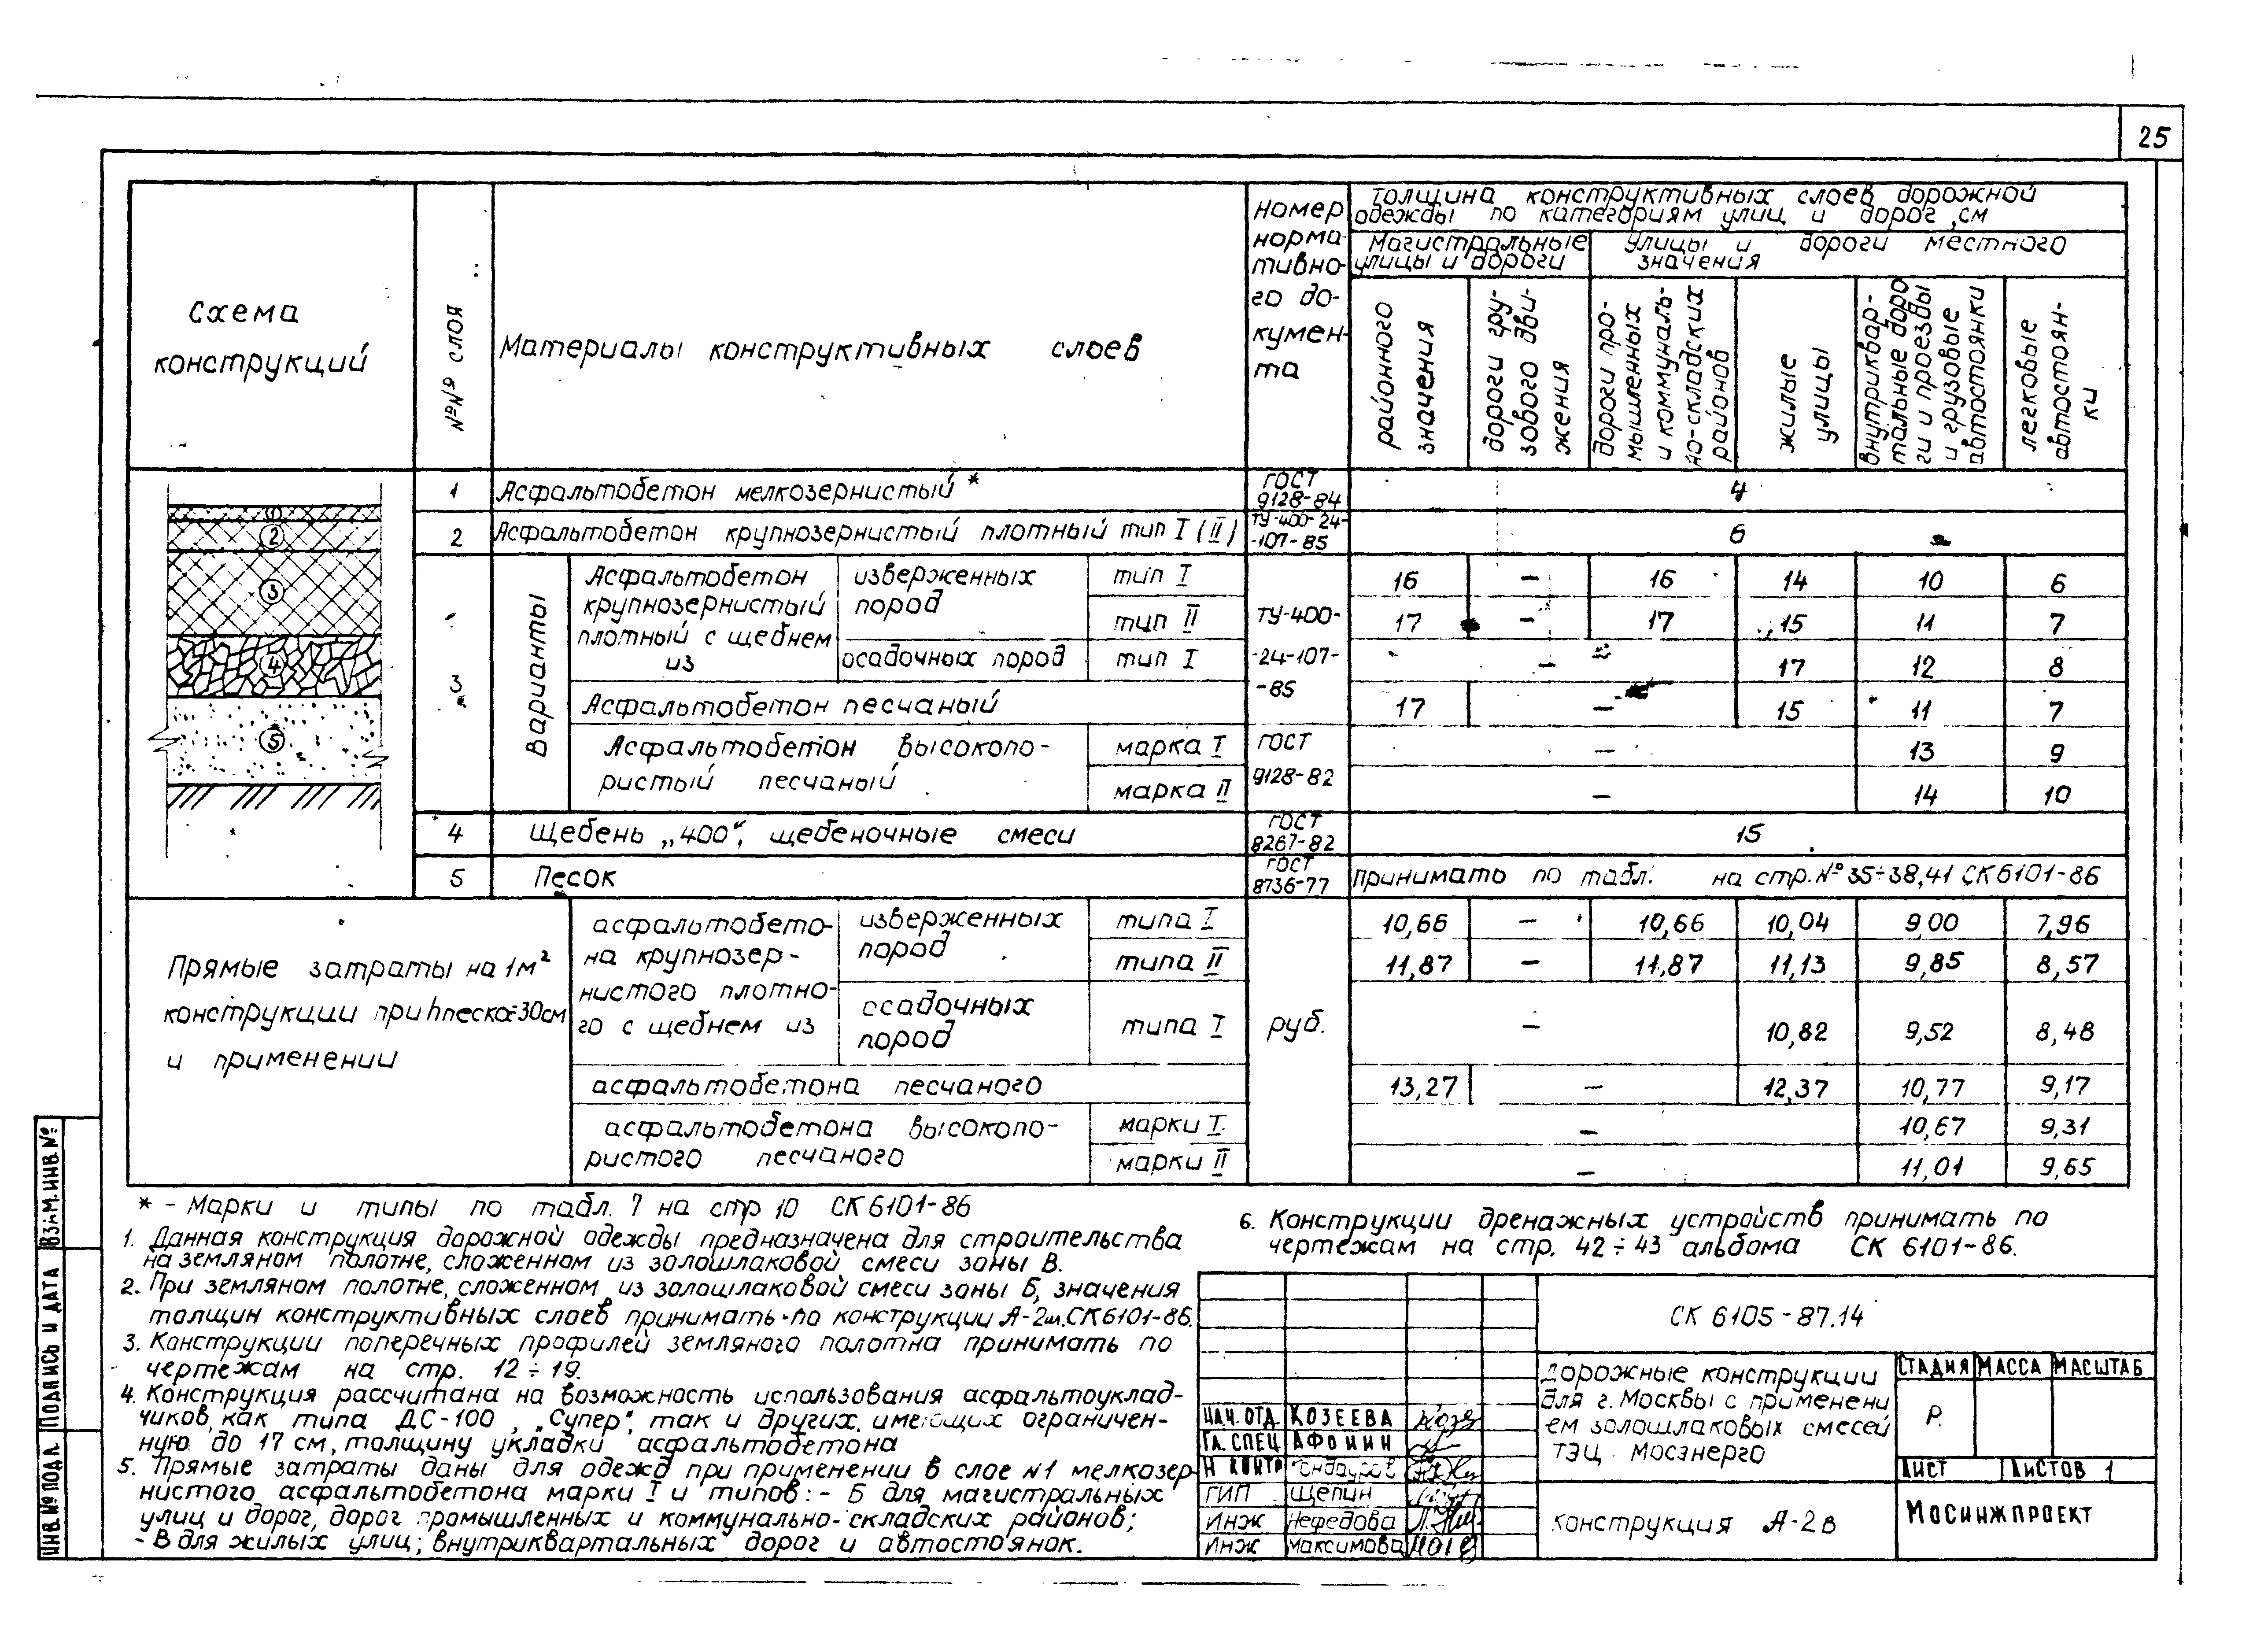 25
Схема
конструкций
№№ слоя
Материалы конструктивных слоев
Номер
норма-
тивно-
го до-
кумен-
та
толщина конструктивных слоев дорожной
одежды по категориям улиц и дорог, см
Магистральные
улицы и дороги
Улицы и дороги местного
значения
районного
значения
дороги гру-
зового дви-
жения
дороги про-
мышленных
и коммуналь-
но-складских
районов
жилые
улицы
внутриквар-
тальные доро
ги и проезды
и грузовые
автостоянки
легковые
автостоян-
ки
1 Асфальтобетон мелкозернистый * ГОСТ 9128-84 4
2 Асфальтобетон крупнозернистый плотный тип I (II) ТУ-400-24-
-107-85 6
3
Варианты
Асфальтобетон
крупнозернистый
плотный с щебнем
из
изверженных
пород
тип I 16 – 16 14 10 6
тип II ТУ-400- 17 – 17 15 11 7
осадочных пород тип I -24-107- – 17 12 8
-85
Асфальтобетон песчаный 17 – 15 11 7
Асфальтобетон высокопо-
ристый песчаный
марка I ГОСТ – 13 9
марка II 9128-82 – 14 10
4 Щебень „400“, щебеночные смеси ГОСТ 8267-82 15
5 Песок ГОСТ 8736-77 принимать по табл. на стр. № 35÷38,41 СК6101-86
1
2
3
4
5
Прямые затраты на 1м²
конструкции при hпеска=30см
и применении
асфальтобето-
на крупнозер-
нистого плотно-
го с щебнем из
изверженных
пород
типа I 10,66 – 10,66 10,04 9,00 7,96
типа II 11,87 – 11,87 11,13 9,85 8,57
осадочных
пород
типа I руб. – 10,82 9,52 8,48
асфальтобетона песчаного 13,27 – 12,37 10,77 9,17
асфальтобетона высокопо-
ристого песчаного
марки I – 10,67 9,31
марки II – 11,01 9,65
* - Марки и типы по табл. 7 на стр 10 СК6101-86
1. Данная конструкция дорожной одежды предназначена для строительства
на земляном полотне, сложенном из золошлаковой смеси зоны В.
2. При земляном полотне, сложенном из золошлаковой смеси зоны Б, значения
толщин конструктивных слоев принимать по конструкции А-2ш.СК6101-86.
3. Конструкции поперечных профилей земляного полотна принимать по
чертежам на стр. 12÷19.
4. Конструкция рассчитана на возможность использования асфальтоуклад-
чиков, как типа ДС-100, „Супер“, так и других, имеющих ограничен-
ную до 17 см, толщину укладки асфальтобетона
5. Прямые затраты даны для одежд при применении в слое №1 мелкозер-
нистого асфальтобетона марки I и типов: - Б для магистральных
улиц и дорог, дорог промышленных и коммунально-складских районов;
- В для жилых улиц; внутриквартальных дорог и автостоянок.
6. Конструкции дренажных устройств принимать по
чертежам на стр. 42÷43 альбома СК 6101-86.
СК 6105-87.14
дорожные конструкции
для г. Москвы с применени
ем золошлаковых смесей
ТЭЦ Мосэнерго
СТАДИЯ МАССА МАСШТАБ
Р.
ЛИСТ ЛИСТОВ 1
конструкция А-2в
МОСИНЖПРОЕКТ
НАЧ. ОТД. КОЗЕЕВА
ГЛ. СПЕЦ АФОНИН
Н КОНТР
ГИП Щепин
ИНЖ Нефедова
ИНЖ Максимова
ВЗАМ. ИНВ №
ПОДПИСЬ И ДАТА
ИНВ. № ПОДЛ.